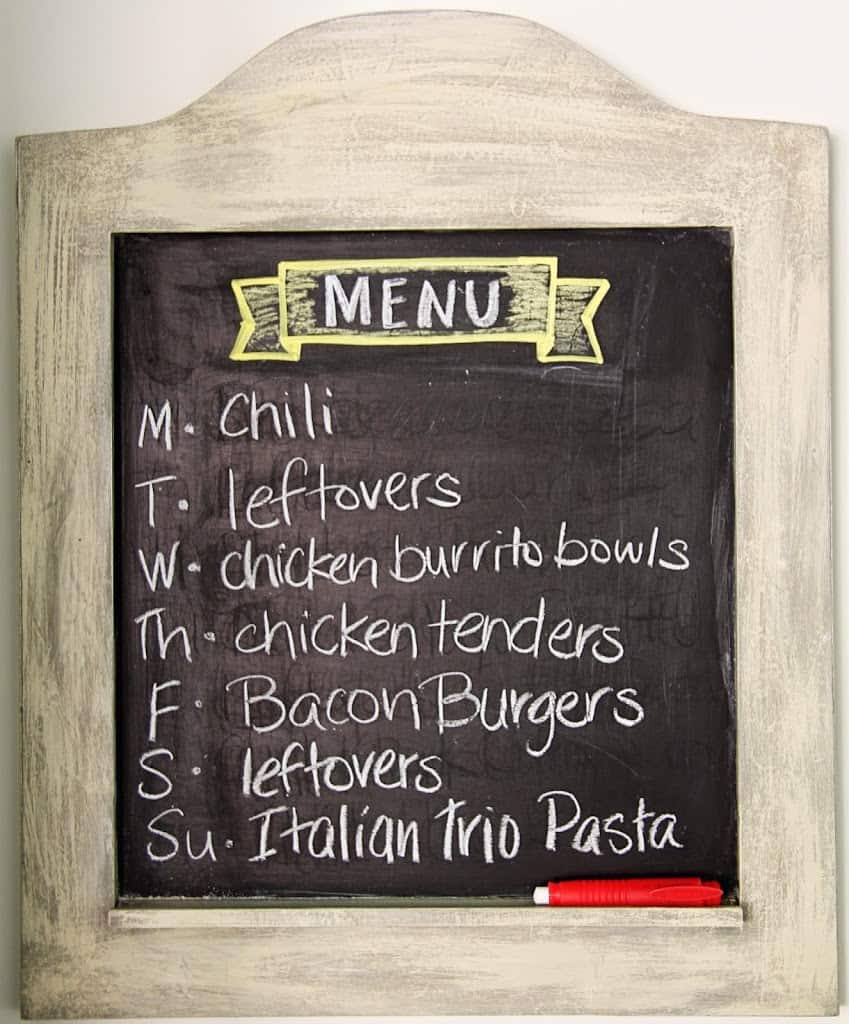 MENU
M. Chili
T. leftovers
W. chicken burrito bowls
Th. chicken tenders
F. Bacon Burgers
S. leftovers
Su. Italian Trio Pasta